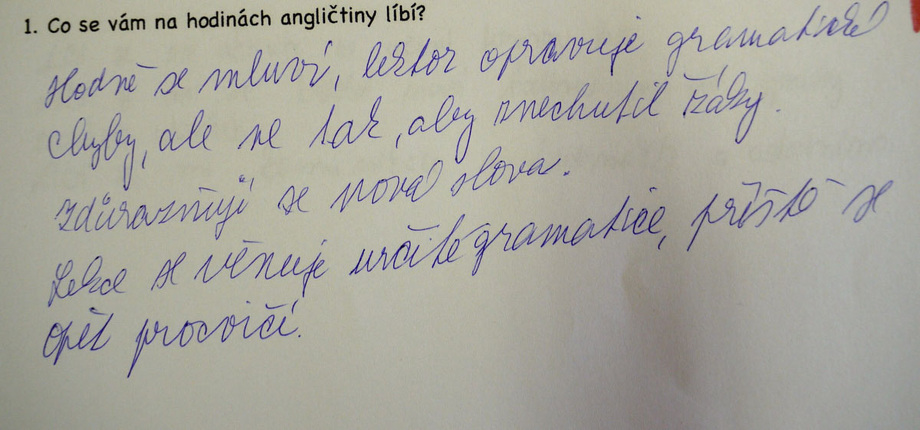 1. Co se vám na hodinách angličtiny líbí?
Hodně se mluví, lektor opravuje gramatické
chyby, ale ne tak, aby znechutil žáky.
Zdůrazňují se nová slova.
Lekce se věnuje určité gramatice, příště se
opět procvičí.